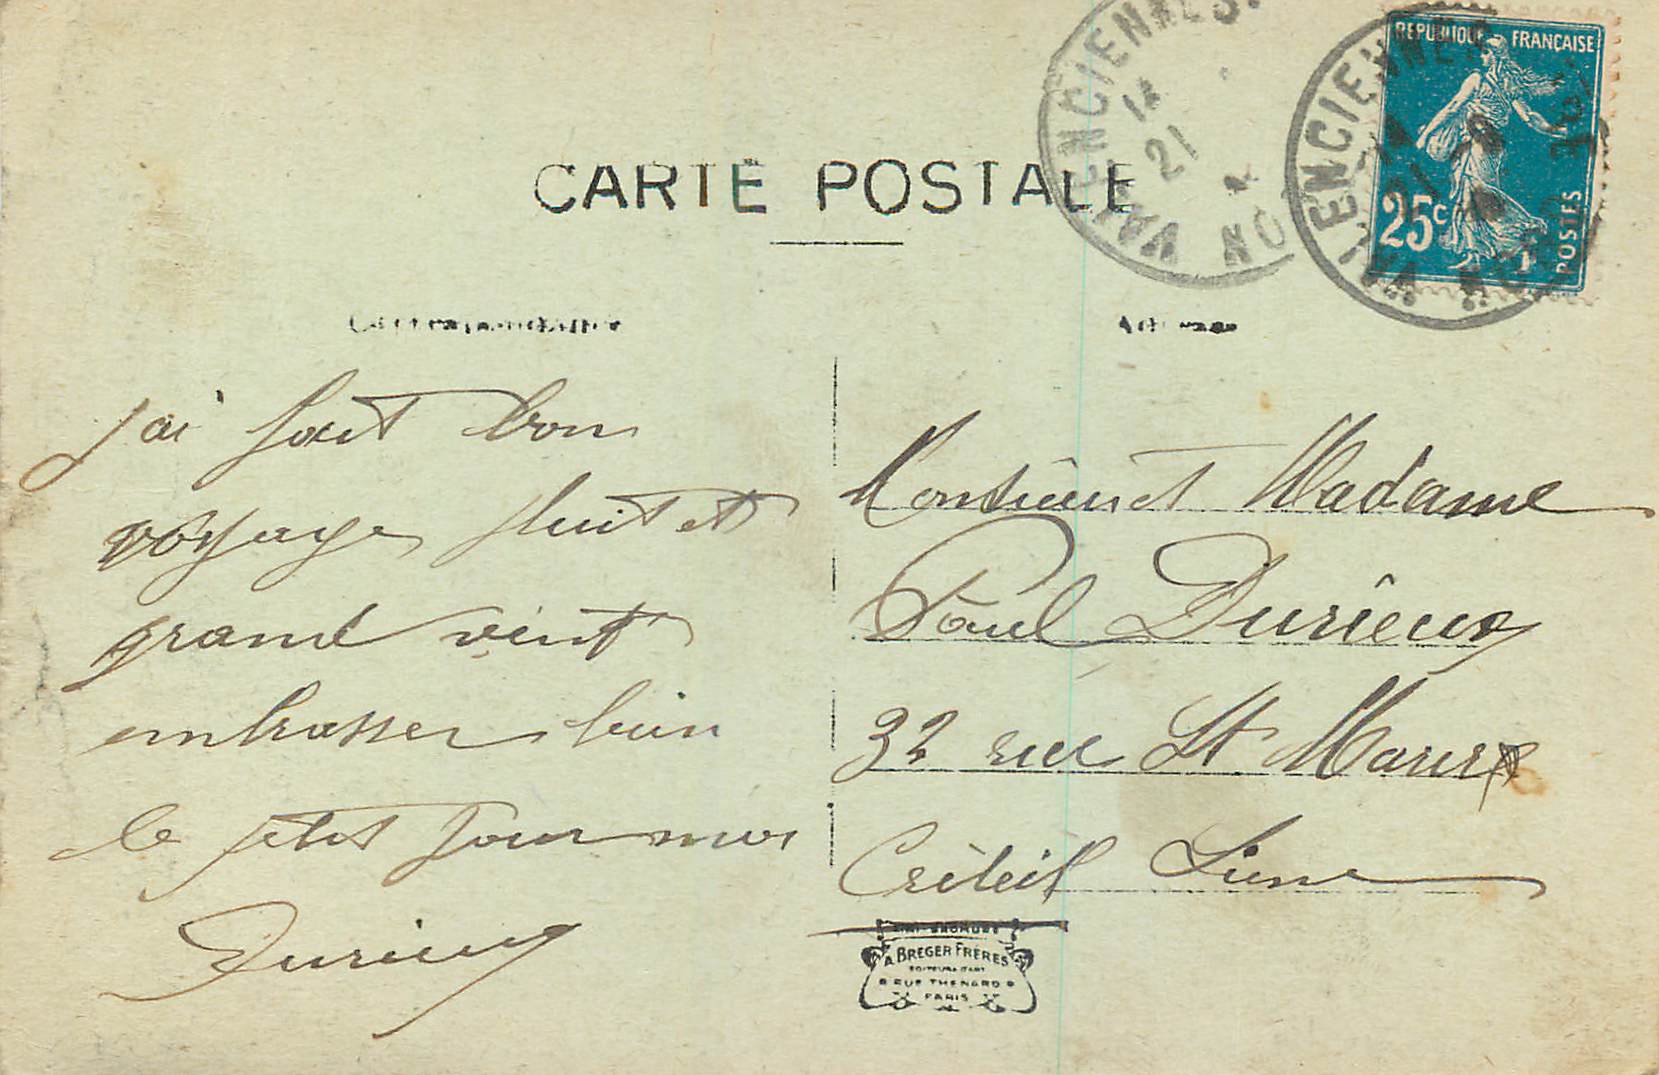 CARTE POSTALE
VALENCIENNES
21
NORD
VALENCIENNES
21
REPUBLIQUE FRANÇAISE
25c
POSTES
Correspondance
Adresse
j'ai fait bon
voyage pluit et
grand vent
embrasser bien
le petit pour moi
Durieux
Monsieur et Madame
Paul Durieux
32 rue St Maur
Créteil Seine
A. BREGER FRÈRES
EDITEURS D'ART
9 RUE THENARD 9
PARIS